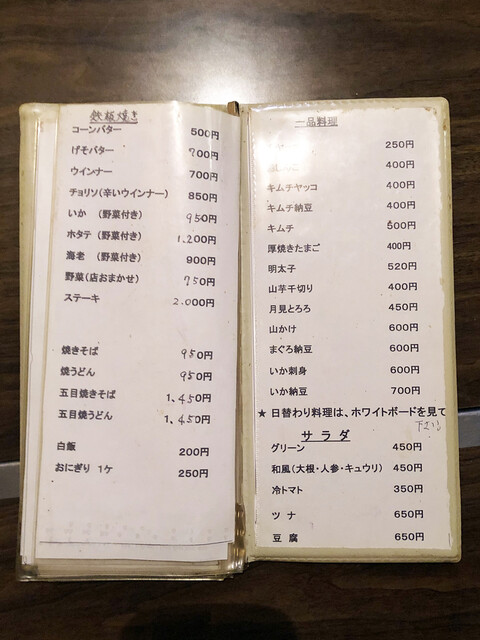 鉄板焼き
コーンバター 500円
げそバター 700円
ウインナー 700円
チョリソ(辛いウインナー) 850円
いか (野菜付き) 950円
ホタテ (野菜付き) 1,200円
海老 (野菜付き) 900円
野菜(店おまかせ) 750円
ステーキ 2,000円
焼きそば 950円
焼うどん 950円
五目焼きそば 1,450円
五目焼うどん 1,450円
白飯 200円
おにぎり 1ケ 250円
一品料理
250円
400円
キムチヤッコ 400円
キムチ納豆 400円
キムチ 500円
厚焼きたまご 400円
明太子 520円
山芋千切り 400円
月見とろろ 450円
山かけ 600円
まぐろ納豆 600円
いか刺身 600円
いか納豆 700円
★日替わり料理は、ホワイトボードを見て
下さい
サラダ
グリーン 450円
和風(大根・人参・キュウリ) 450円
冷トマト 350円
ツナ 650円
豆腐 650円